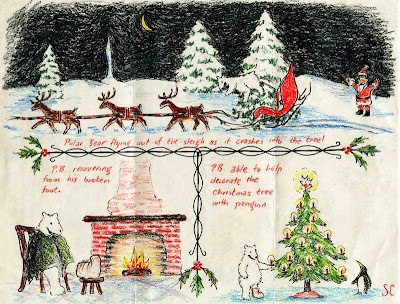 Polar Bear flying out of the sleigh as it crashes into the tree!
P.B. recovering
from his broken
foot.
P.B. able to help
decorate the
christmas tree
with penguin
SC